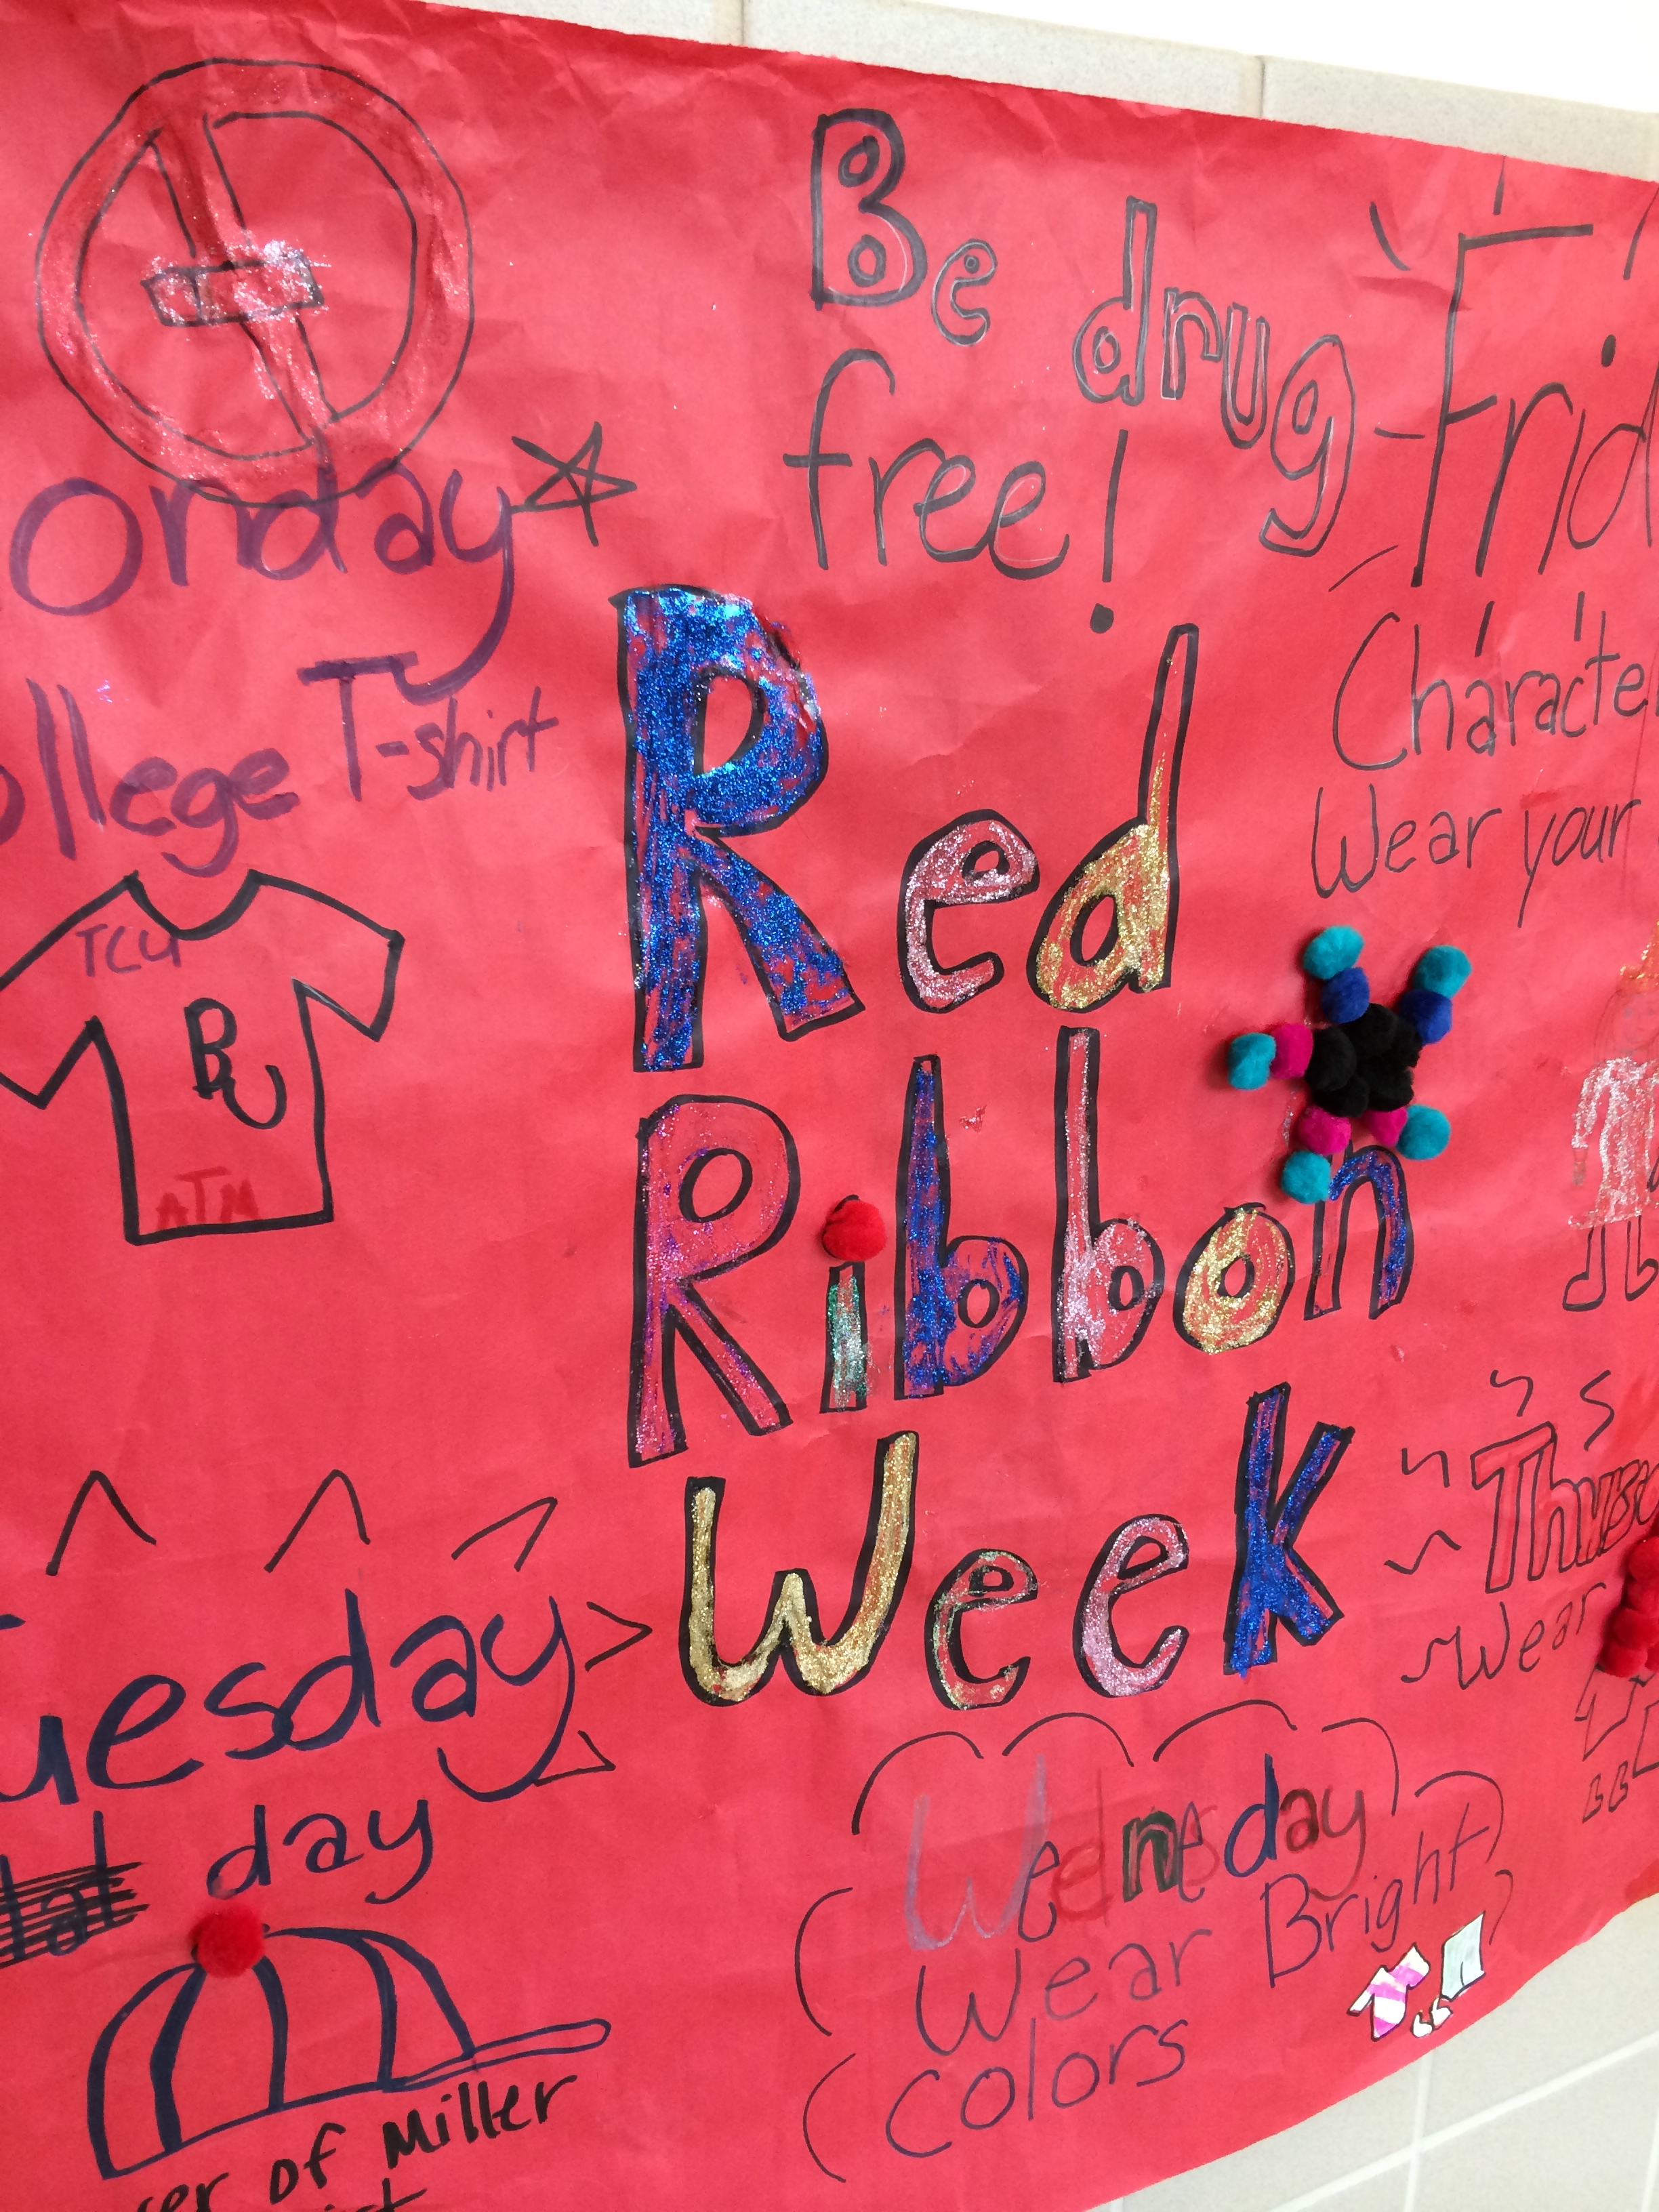 Be drug-
free!
Red
Ribbon
Week
onday
ollege T-shirt
TCU
BU
ATM
uesday
day
of Miller
Wednesday
Wear Bright
Colors
Frid
Characte
Wear your
Thurs
Wear